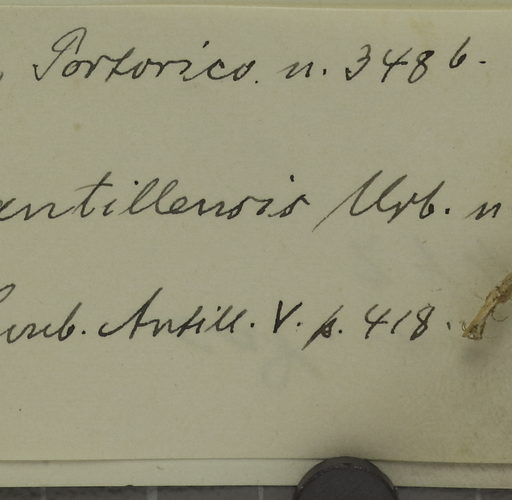 Portorico. n. 3486.
antillensis Urb. n
Antill. V. p. 418.